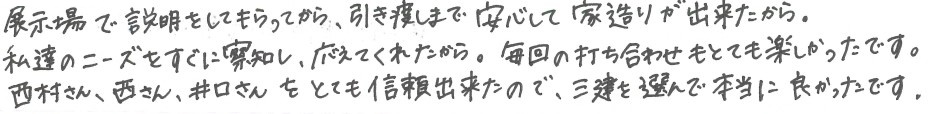 展示場で説明をしてもらってから、引き渡しまで安心して家造りが出来たから。
私達のニーズをすぐに察知し、応えてくれたから。毎回の打ち合わせもとても楽しかったです。
西村さん、西さん、井口さんをとても信頼出来たので、三建を選んで本当に良かったです。